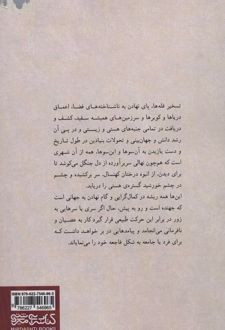 تسخیر قله‌ها، پای نهادن به ناشناخته‌های فضا، اعماق
دریاها و کویرها و سرزمین‌های همیشه سفید، کشف و
دریافت در تمامی جنبه‌های هستی و زیستی و در پی آن
رصد دانش و جهان‌بینی و تحولات بنیادین در طول تاریخ
و دست یازیدن به آن‌سوها و این‌سوها، همه از آن شهری
است که هم‌چون نهالی سربرآورده از دل جنگل می‌کوشد تا
سر برکشیدن، از انبوه درختان کهنسال، سر برکشیده و چشم
در چشم خورشید گستره‌ی هستی را دریابد.
این‌ها همه ریشه در کمال‌گرایی و گام نهادن به جهانی است
که جهنده است و رو به پیش، حال اگر سری یا سرهایی به
زور در برابر این حرکت طبیعی قرار گیرد کار به عصیان و
نافرمانی می‌انجامد و پیامدهایی در بر خواهد داشت که
برای فرد یا جامعه به شکل فاجعه خود را می‌نمایاند.
ISBN 978-622-7546-96-5
9 786227 546965
MIRDASHTI BOOKS